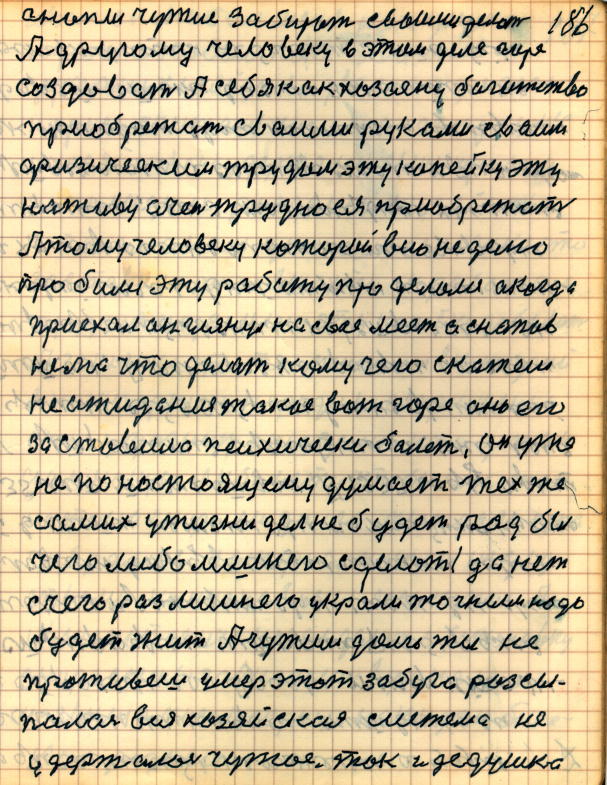 снопи чужие забират своими делат 186
А другому человеку в этом деле горе
создоват А себя как хозаену багатство
приобретат своими руками своим
физическим трудом эту копейку эту
наживу очен трудно ея приобретат
А тому человеку который вию неделю
пробили эту работу про делали а когда
приехал он глянул на свое место снопов
нема что делат кому чего скажеш
не ожидания такое вот горе оно его
заставило психически болет, он уже
не по ностоящему думает тех же
самих у жизни дел не будет рад бы
чего либо лишнего сделот да нет
с чего раз лишнего украли то чужим надо
будет жит А чужим долго ж ти не
проживеш умер этот забуга розси-
палася вся хозяйская система не
удержалася чужое. так и дедушка